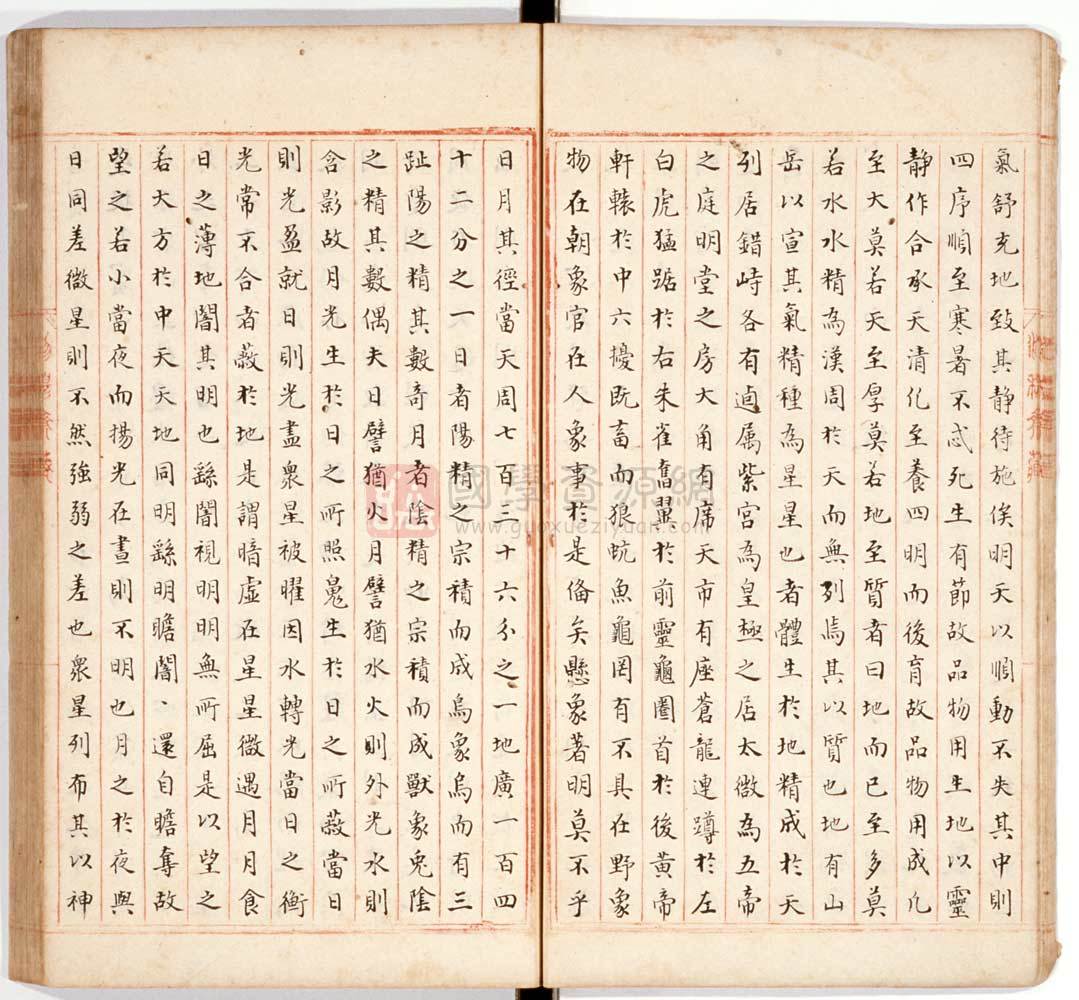 氣舒充地致其静待施俟明天以順動不失其中則
四序順至寒暑不忒死生有節故品物用生地以靈
静作合承天清化至養四明而後育故品物用成凡
至大莫若天至厚莫若地至質者曰地而已至多莫
若水水精為漢周於天而無列焉其以質也地有山
岳以宣其氣精種為星星也者體生於地精成於天
列居錯峙各有逌属紫宮為皇極之居太微為五帝
之庭明堂之房大角有席天市有座蒼龍連蹲於左
白虎猛踞於右朱雀奮翼於前靈龜圈首於後黄帝
軒轅於中六擾既畜而狼蚖魚龜罔有不具在野象
物在朝象官在人象事於是俻矣懸象著明莫不乎
日月其徑當天周七百三十六分之一地廣一百四
十二分之一日者陽精之宗積而成烏象烏而有三
趾陽之精其數奇月者陰精之宗積而成獸象兎陰
之精其數偶夫日譬猶火月譬猶水火則外光水則
含影故月光生於日之所照鬼生於日之所蔽當日
則光盈就日則光盡衆星被曜因水轉光當日之衝
光常不合者蔽於地是謂暗虚在星星微遇月月食
日之薄地闇其明也繇闇視明明無所屈是以望之
若大方於中天天地同明繇明瞻闇、還自瞻奪故
望之若小當夜而揚光在晝則不明也月之於夜與
日同差微星則不然強弱之差也衆星列布其以神
國學資源網
www.guoxueziyuan.com